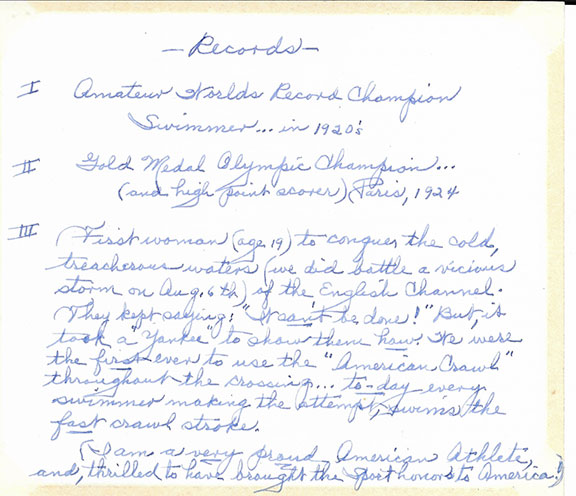 — Records —
I Amateur Worlds Record Champion
Swimmer... in 1920's
II Gold Medal Olympic Champion...
(and high point scorer) Paris, 1924
III (First woman (age 19) to conquer the cold,
treacherous waters (we did battle a vicious
storm on Aug. 6th) of the English Channel.
They kept saying: "It can't be done!" But, it
took a "Yankee" to show them how. We were
the first ever to use the "American Crawl"
throughout the crossing... to-day every
swimmer making the attempt, swims the
fast crawl stroke.
(I am a very proud American Athlete,
and, thrilled to have brought the sport honors to America!)